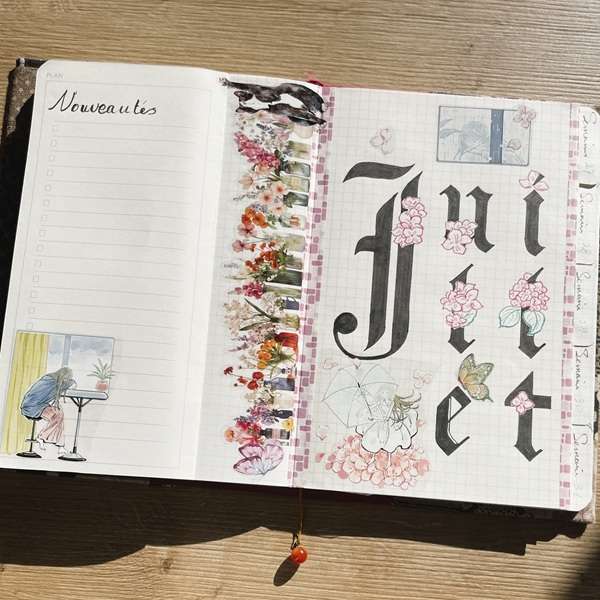 PLAN
Nouveautés
Jui
ll
et
Semaine
Semaine 28
Semaine
Semaine
Semaine